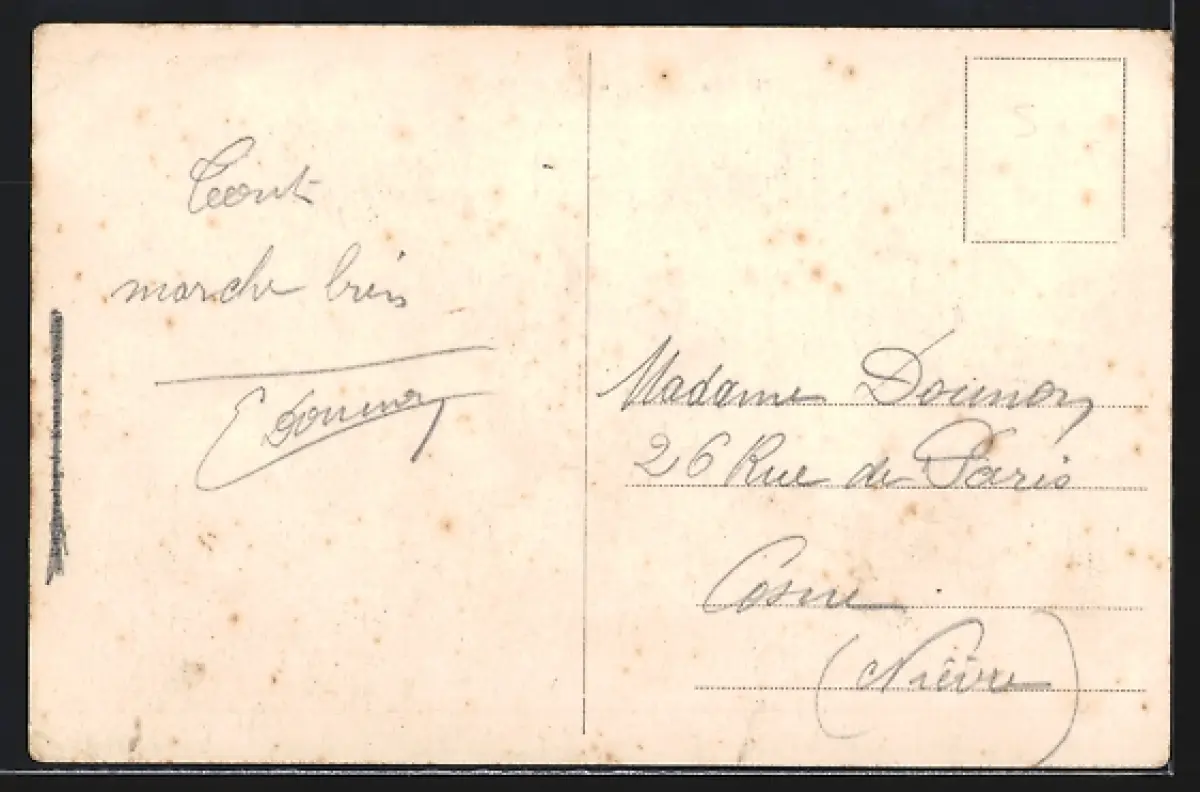 Tout
marche bien
E Dounon
Madame Dounon
26 Rue de Paris
Cosne
(Nièvre)
5